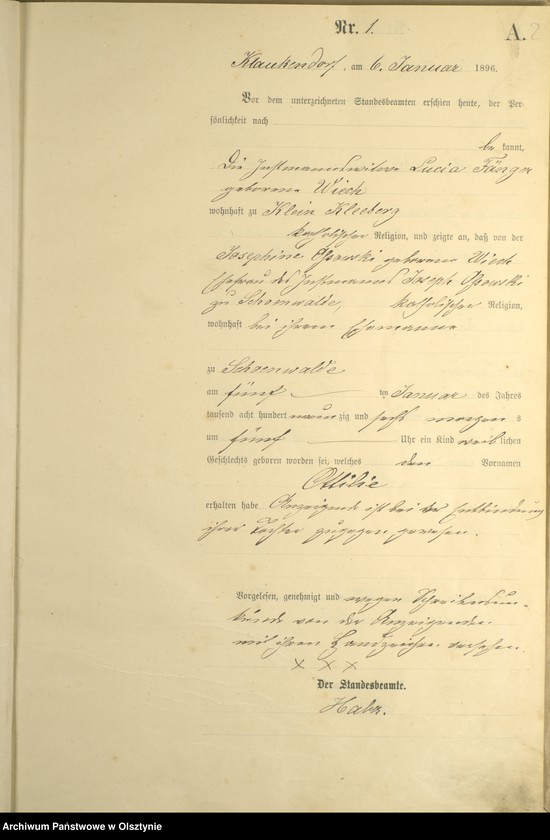 Nr. 1.
A. 2
Klaukendorf, am 6. Januar 1896.
Vor dem unterzeichneten Standesbeamten erschien heute, der Per-
sönlichkeit nach
be kannt,
Die Instmannswitwe Lucia Fänger
geborene Wiech
wohnhaft zu Klein Kleeberg
katholischer Religion, und zeigte an, daß von der
Josephine geborene Wiech
Ehefrau des Instmanns Joseph
zu Schoenwalde, katholischer Religion,
wohnhaft bei ihrem Ehemanne
zu Schoenwalde
am fünf ten Januar des Jahres
tausend acht hundert neunzig und sechs morgens
um fünf Uhr ein Kind weiblichen
Geschlechts geboren worden sei, welches den Vornamen
Ottilie
erhalten habe Anzeigende ist bei der Entbindung
ihrer Tochter zugegen gewesen.
Vorgelesen, genehmigt und wegen Schreibensun-
kunde von der Anzeigenden
mit ihren Handzeichen versehen.
× × ×
Der Standesbeamte.
Archiwum Państwowe w Olsztynie